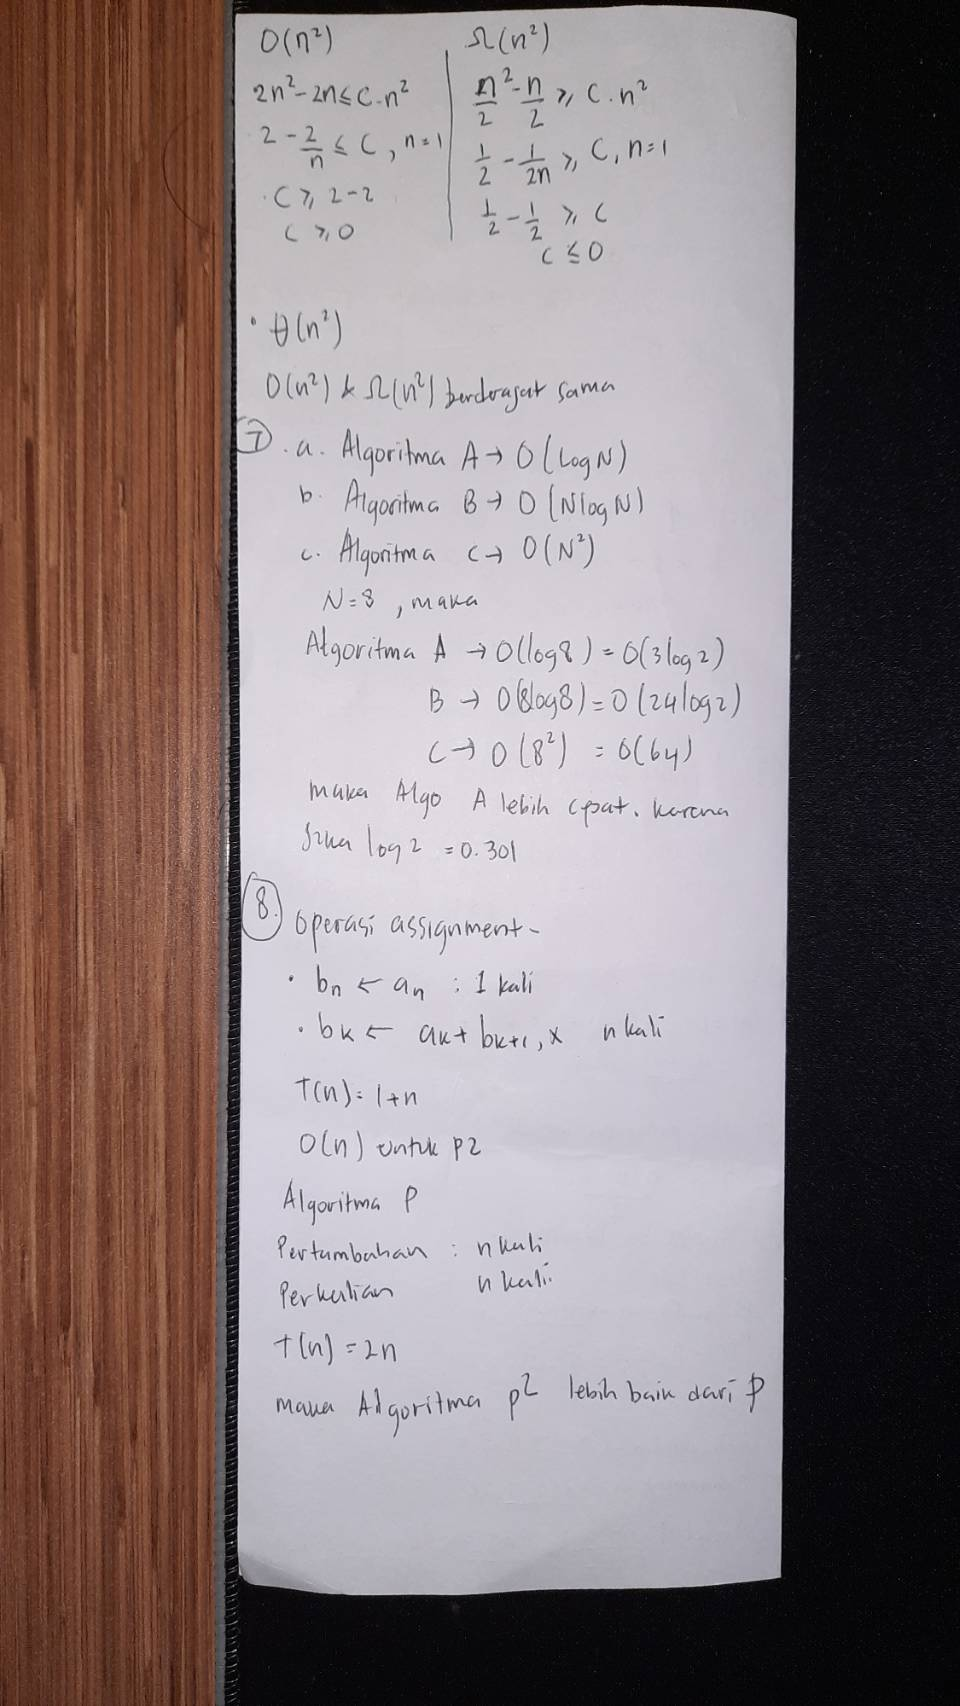 O(n²)
2n²-2n ≤ C.n²
2 - 2/n ≤ C, n=1
C ≥ 2-2
C ≥ 0
Ω(n²)
n²/2 - n/2 ≥ C.n²
1/2 - 1/2n ≥ C, n=1
1/2 - 1/2 ≥ C
C ≤ 0
• θ(n²)
O(n²) & Ω(n²) berderajat sama
7. a. Algoritma A → O(Log N)
b. Algoritma B → O(N log N)
c. Algoritma C → O(N²)
N=8, maka
Algoritma A → O(log 8) = O(3 log 2)
B → O(8log8) = O(24 log 2)
C → O(8²) = O(64)
maka Algo A lebih cpat. karena
log 2 = 0.301
8. Operasi assignment -
• bn ← an : 1 kali
• bk ← ak + bk+1, x n kali
T(n) = 1+n
O(n) untuk P2
Algoritma P
Pertambahan : n kali
Perkalian n kali.
T(n) = 2n
maka Algoritma p2 lebih baik dari P